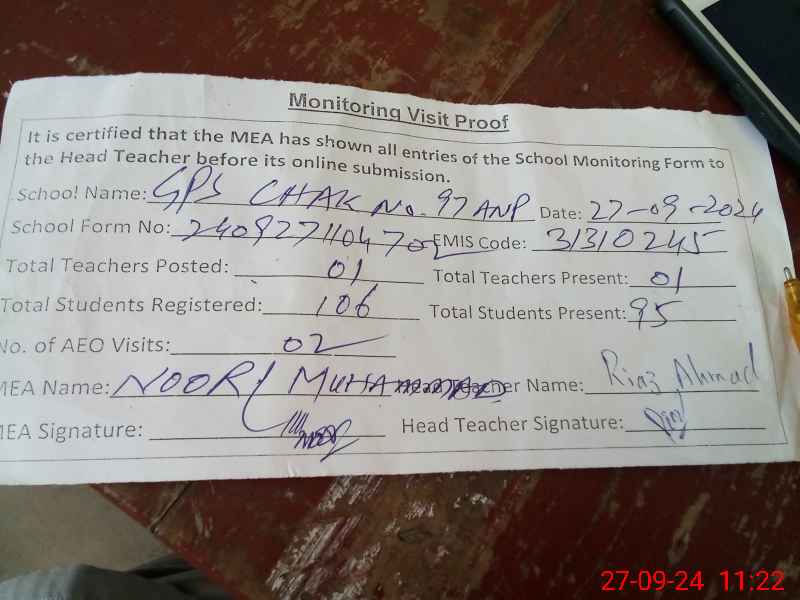 Monitoring Visit Proof
It is certified that the MEA has shown all entries of the School Monitoring Form to
the Head Teacher before its online submission.
School Name: GPS CHAK No. 97 ANP Date: 27-09-2024
School Form No: 2409271104702 EMIS Code: 31310245
Total Teachers Posted: 01 Total Teachers Present: 01
Total Students Registered: 106 Total Students Present: 95
No. of AEO Visits: 02
MEA Name: NOOR MUHAMMAD Head Teacher Name: Riaz Ahmad
MEA Signature: Head Teacher Signature:
27-09-24 11:22